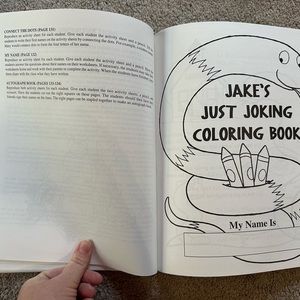 CONNECT THE DOTS (PAGE 131)
Reproduce an activity sheet for each student. Give each student the activity sheet and a pencil.
students to write their names on the activity sheets by connecting the dots. For example,
Mary would connect dots to form the four letters of her name.
MY NAME (PAGE 132)
Reproduce an activity sheet for each student. Give each student the activity sheet and a pencil.
students answer the questions about their names on their worksheets. If necessary, the students may take their
worksheets home and work with their parents to complete the activity. When the students have finished
them share with the class what they have written.
AUTOGRAPH BOOK (PAGES 133-134)
Reproduce both activity sheets for each student. Give each student the two activity sheets, a pencil
scissors. Have the students cut out the eight squares on these pages. The students should then have
friends sign their names on them. The eight pages can be stapled together to make an autograph book.
JAKE'S
JUST JOKING
COLORING BOOK
My Name Is